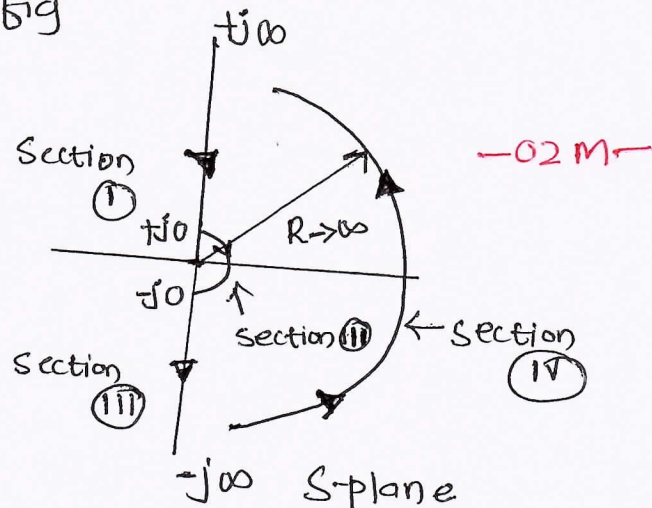 Fig
+j∞
Section
I
-02 M-
+j0
R→∞
-j0
Section II
← Section
IV
Section
III
-j∞ S-plane